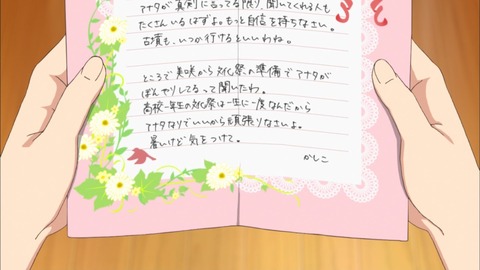 アナタが真剣に言ってる限り、聞いてくれる人も
たくさんいるはずよ。もっと自信を持ちなさい。
古墳も、いつか行けるといいわね。
ところで美咲から文化祭の準備でアナタが
ぼんやりしてるって聞いたわ。
高校一年生の文化祭は一生に一度なんだから
アナタなりでいいから頑張りなさいよ。
暑いけど気をつけて。
かしこ